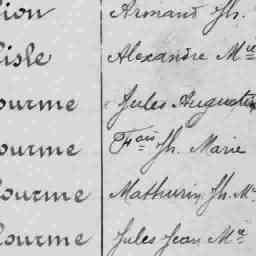 ion Armand Jh.
lisle Alexandre Mie
ourme Jules Augustin
ourme Fois Jh. Marie
ourme Mathurin Jh. M
ourme Jules Jean Mie